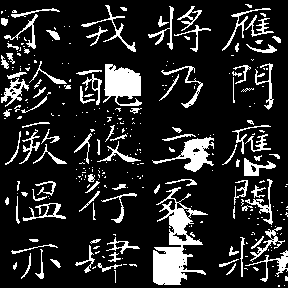 應門應門將
將乃立冢土
戎醜攸行肆
不殄厥慍亦